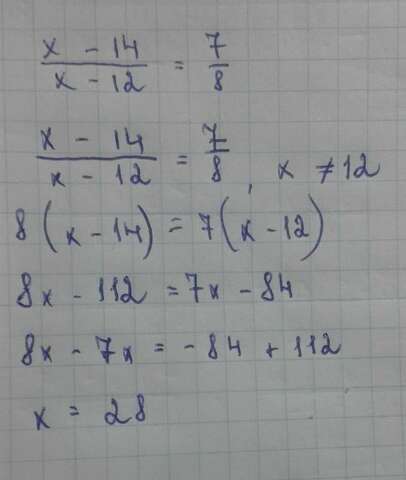 x - 14 / x - 12 = 7 / 8
x - 14 / x - 12 = 7 / 8 , x ≠ 12
8(x - 14) = 7(x - 12)
8x - 112 = 7x - 84
8x - 7x = - 84 + 112
x = 28